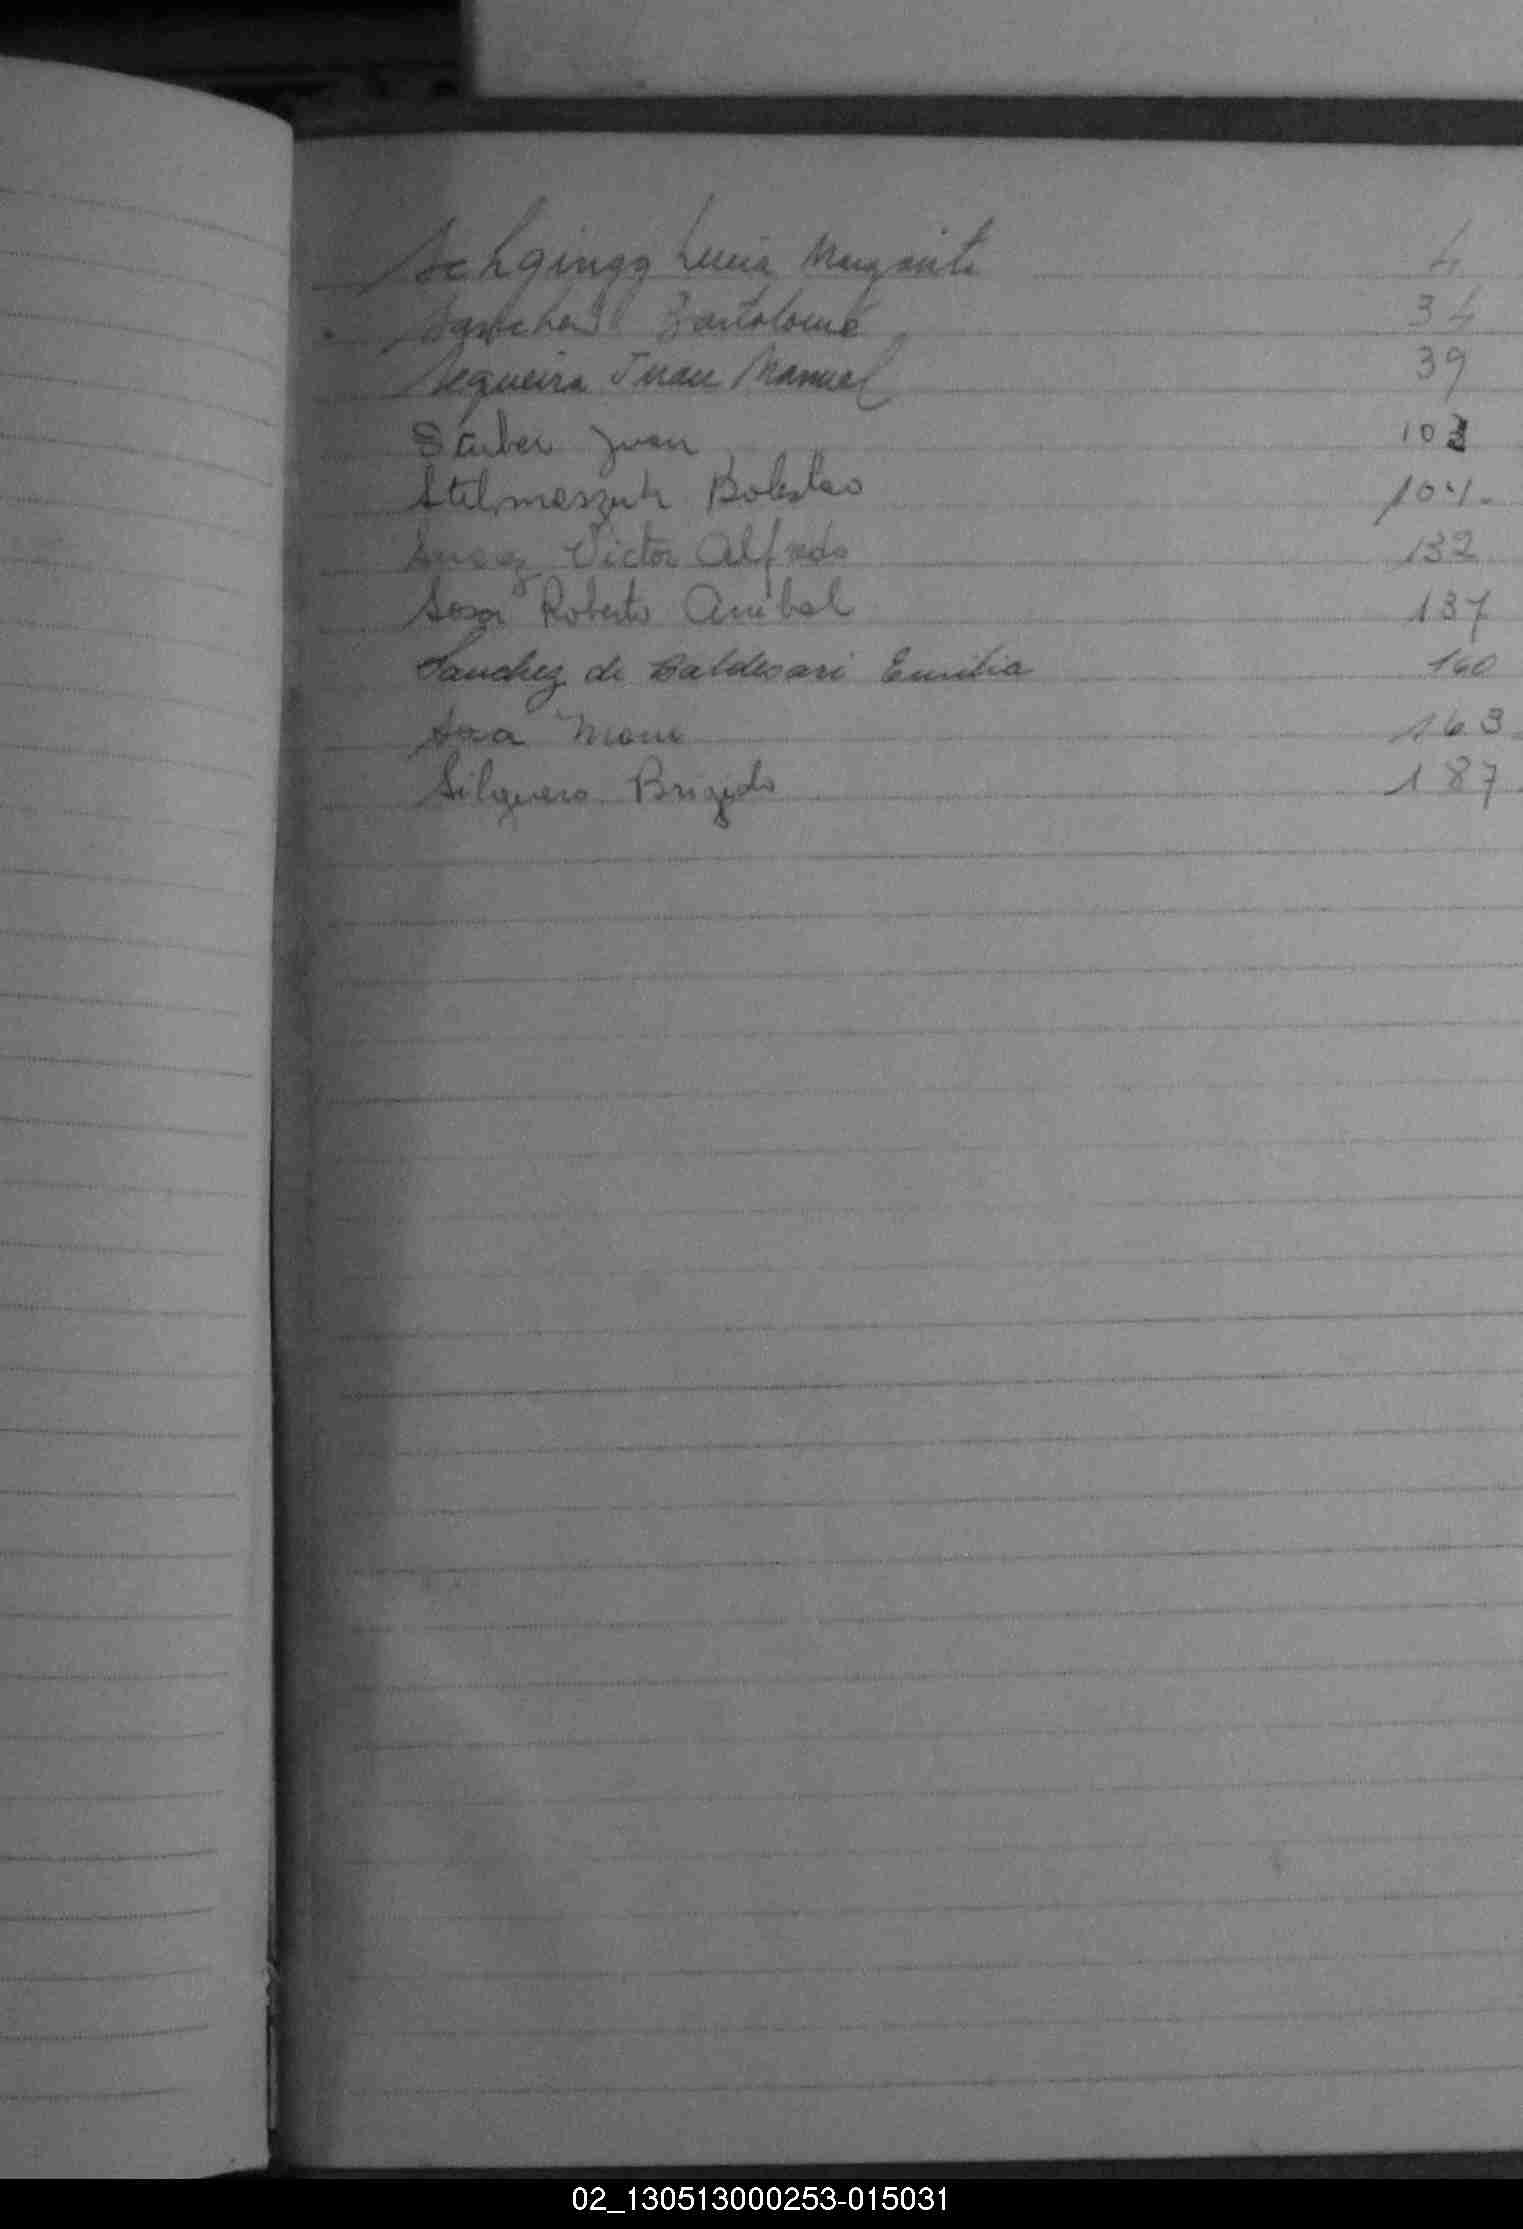 Schgingg Lucia Margarita 4
Sanchez Bartolomé 34
Sequeira Juan Manuel 39
Sauber Juan 103
Stelmaszuk Boleslao 104.
Suaez Victor Alfredo 132
Sosa Roberto Anibal 137
Sanchez de Baldesari Emilia 160
Sosa 163.
Silguero Brigido 187.
02_130513000253-015031